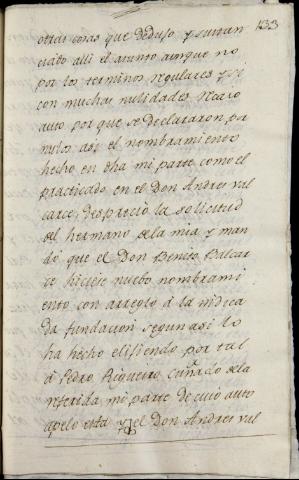 133
ottras cosas que dedujo, y sustan
ciado alli el asunto aunque no
por los terminos regulares y si
con muchas nulidades Recayo
auto por que se declararon por
nulos asi el nombramiento
hecho en dha mi parte como el
practicado en el Don Andres Val
carce, desprecio la solicitud
del hermano dela mia y man
dó que el Don Benito Balcar
ce hiciese nuebo nombrami
ento con arreglo á la indica
da fundacion segun asi lo
ha hecho elijiendo por tal
á Pedro Rigueiro Cuñado dela
referida mi parte de cuio auto
apelo esta y el Don Andres Val